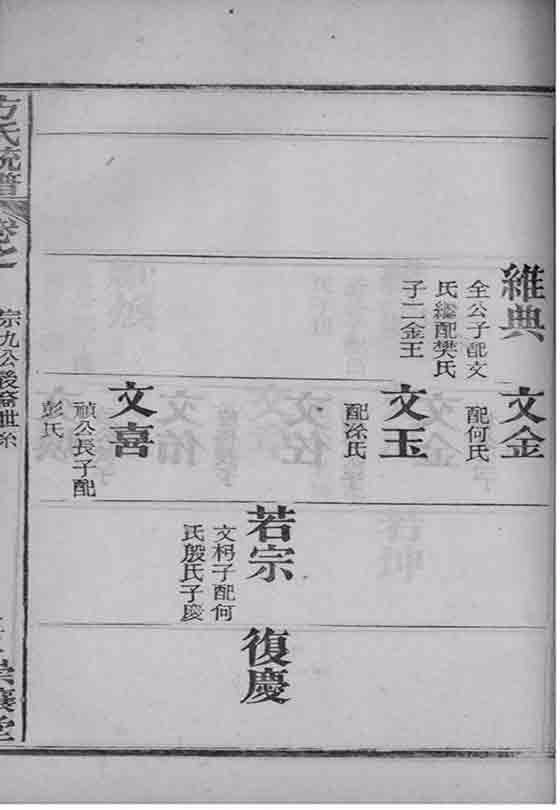 維典
全公子配文
氏繼配樊氏
子二金玉
文金
配何氏
文玉
配涂氏
若宗
文枴子配何
氏殷氏子慶
復慶
文喜
禎公長子配
彭氏
方氏統譜
卷之一
宗九公後裔世系